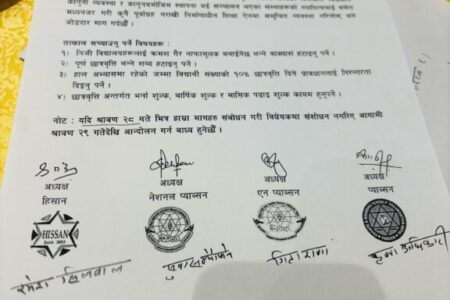 कानुनी व्यवस्था र कानुनबमोजिम स्थापना भई सञ्चालन भएका संस्थाहरूको
मध्यनजर गरी कुनै पूर्वाग्रह नराखी निर्माणाधीन शिक्षा ऐनमा समुचित व्यवस्था गरिदिन, भनि
जोडदार माग गर्दछौं ।
तत्काल सच्याउनु पर्ने विषयहरू :
१। निजी विद्यालयहरूलाई क्रमशः गैर नाफामूलक बनाईनेछ भन्ने वाक्यांश हटाइनु पर्ने ।
२। पूर्ण छात्रवृत्ति भन्ने शब्द हटाइनु पर्ने ।
३। हाल अभ्यासमा रहेको जम्मा विद्यार्थी संख्याको १०% छात्रवृत्ति दिने प्रावधानलाई निरन्तरता
दिइनु पर्ने ।
४। छात्रवृत्ति अन्तरगत भर्ना शुल्क, वार्षिक शुल्क र मासिक पढाइ शुल्क कायम हुनुपर्ने ।
नोट : यदि श्रावण २८ गते भित्र हाम्रा मागहरु संबोधन गरी विधेयकमा संशोधन नगरिए आगामी
श्रावण २९ गतेदेखि आन्दोलन गर्न बाध्य हुनेछौं ।
अध्यक्ष अध्यक्ष अध्यक्ष अध्यक्ष
हिसान नेशनल प्याब्सन एन प्याब्सन प्याब्सन
HISSAN
रमेश सिलवाल गिता राणा कृष्ण अधिकारी